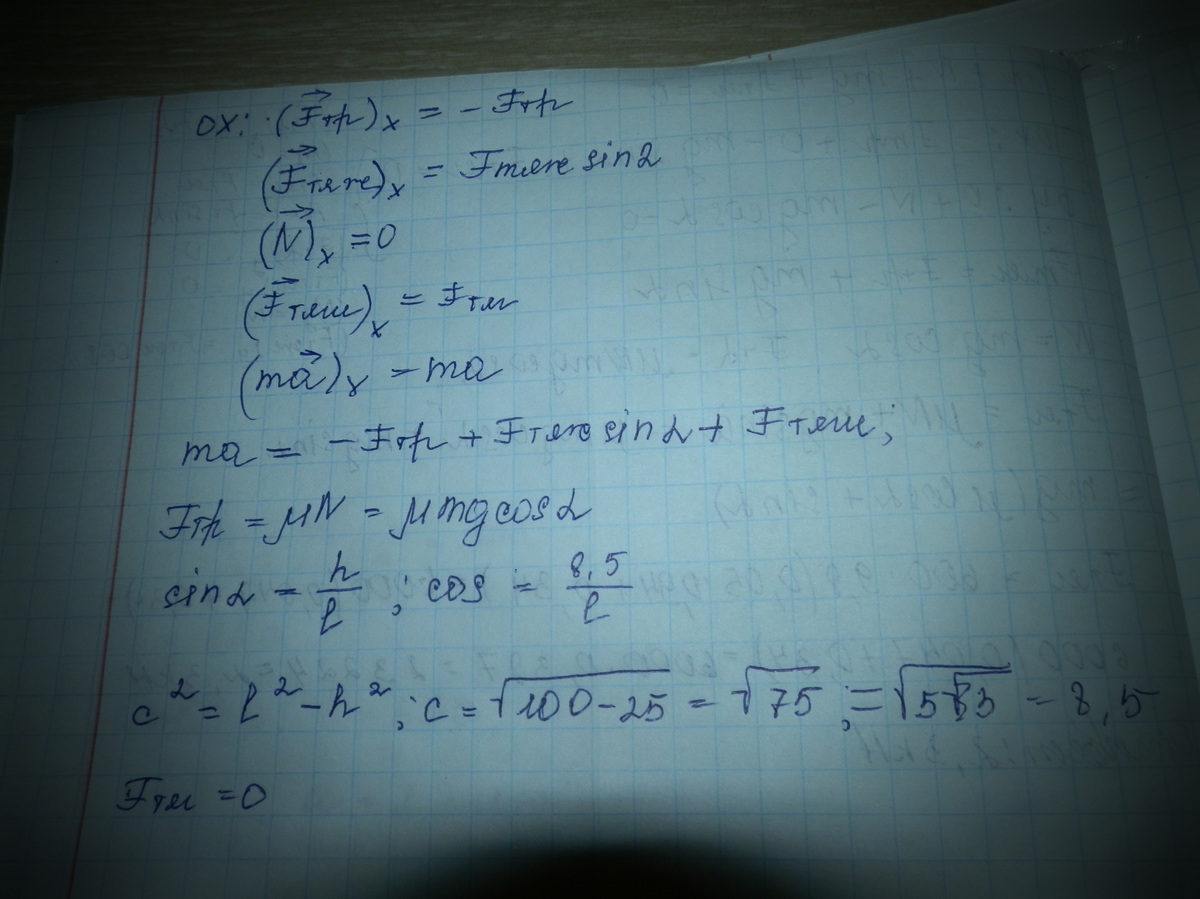 OX: (F⃗тр)ₓ = - Fтр
(F⃗тяж)ₓ = Fтяж sin α
(N⃗)ₓ = 0
(F⃗тяги)ₓ = Fтяг
(ma⃗)ₓ - ma
ma = - Fтр + Fтяж sin α + Fтяги;
Fтр = μN = μmg cos α
sin α = h/l ; cos = 8,5/l
c² = l² - h² ; c = √(100-25) = √75 ; = √5√3 - 8,5
Fтяг = 0